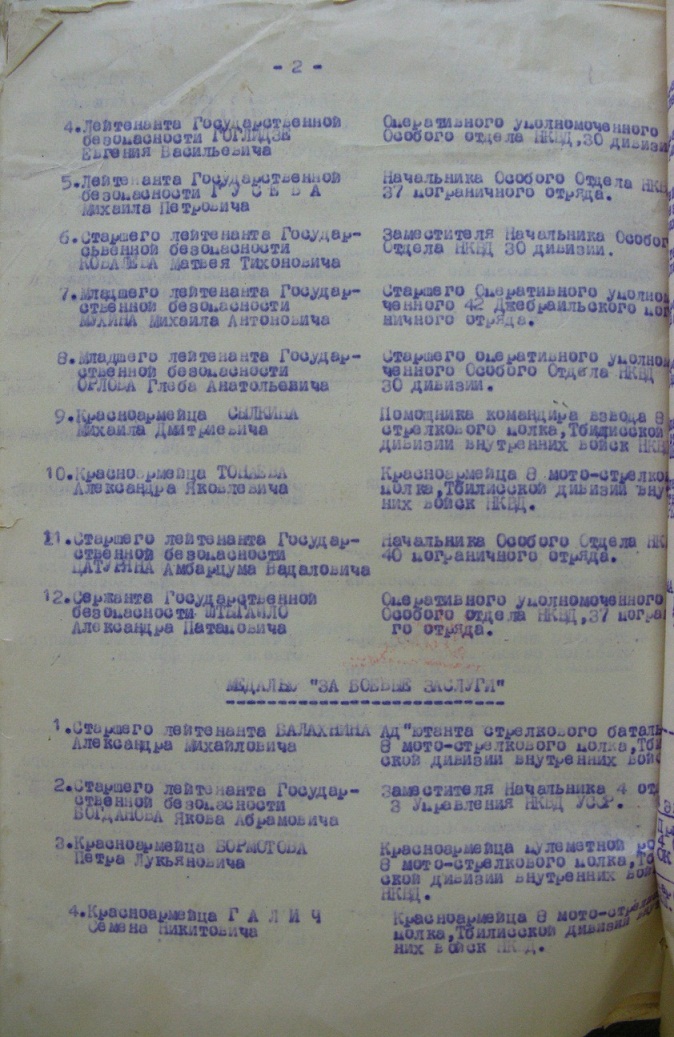 - 2 -
4.Лейтенанта Государственной Оперативного уполномоченного
безопасности ГОГЛИДЗЕ Особого отдела НКВД,30 дивизи
Евгения Васильевича
5.Лейтенанта Государственной Начальника Особого Отдела НКВ
безопасности Г У С Е В А 37 пограничного отряда.
Михаила Петровича
6.Старшего лейтенанта Государ- Заместителя Начальника Особог
сьвенной безопасности Отдела НКВД 30 дивизии.
КОВАЛЕВА Матвея Тихоновича
7.Младшего лейтенанта Государ- Старшего Оперативного уполном
ственной безопасности ченного 42 Джебраильского пог
МУХИНА Михаила Антоновича ничного отряда.
8.Младшего лейтенанта Государ- Старшего оперативного уполном
ственной безопасности ченного Особого Отдела НКВД
ОРЛОВА Глеба Анатольевича 30 дивизии.
9.Красноармейца СЫЛКИНА Помощника командира взвода 8
Михаила Дмитриевича стрелкового полка,Тбилисской
дивизии внутренних войск НКВ
10.Красноармейца ТОНАЕВА Красноармейца 8 мото-стрелко
Александра Яковлевича полка,Тбилисской дивизии вну
них войск НКВД.
11.Старшего лейтенанта Государ- Начальника Особого Отдела НК
ственной безопасности 40 пограничного отряда.
ЦАТУРЯНА Амбарцума Вадаловича
12.Сержанта Государственной Оперативного уполномоченного
безопасности ШТЫГАЙЛО Особого отдела НКВД,37 погра
Александра Патаповича го отряда.
МЕДАЛЬЮ "ЗА БОЕВЫЕ ЗАСЛУГИ"
1.Старшего лейтенанта БАЛАХНИНА Ад"ютанта стрелкового баталь
Александра Михайловича 8 мото-стрелкового полка,Тби
ской дивизии внутренних вой
2.Старшего лейтенанта Государ- Заместителя Начальника 4 от
ственной безопасности 3 Управления НКВД УССР.
БОГДАНОВА Якова Абрамовича
3.Красноармейца БОРМОТОВА Красноармейца пулеметной ро
Петра Лукьяновича 8 мото-стрелкового полка,Тб
ской дивизии внутренних вой
НКВД.
4.Красноармейца Г А Л И Ч Красноармейца 8 мото-стрел
Семена Никитовича полка,Тбилисской дивизии
них войск НКВД.